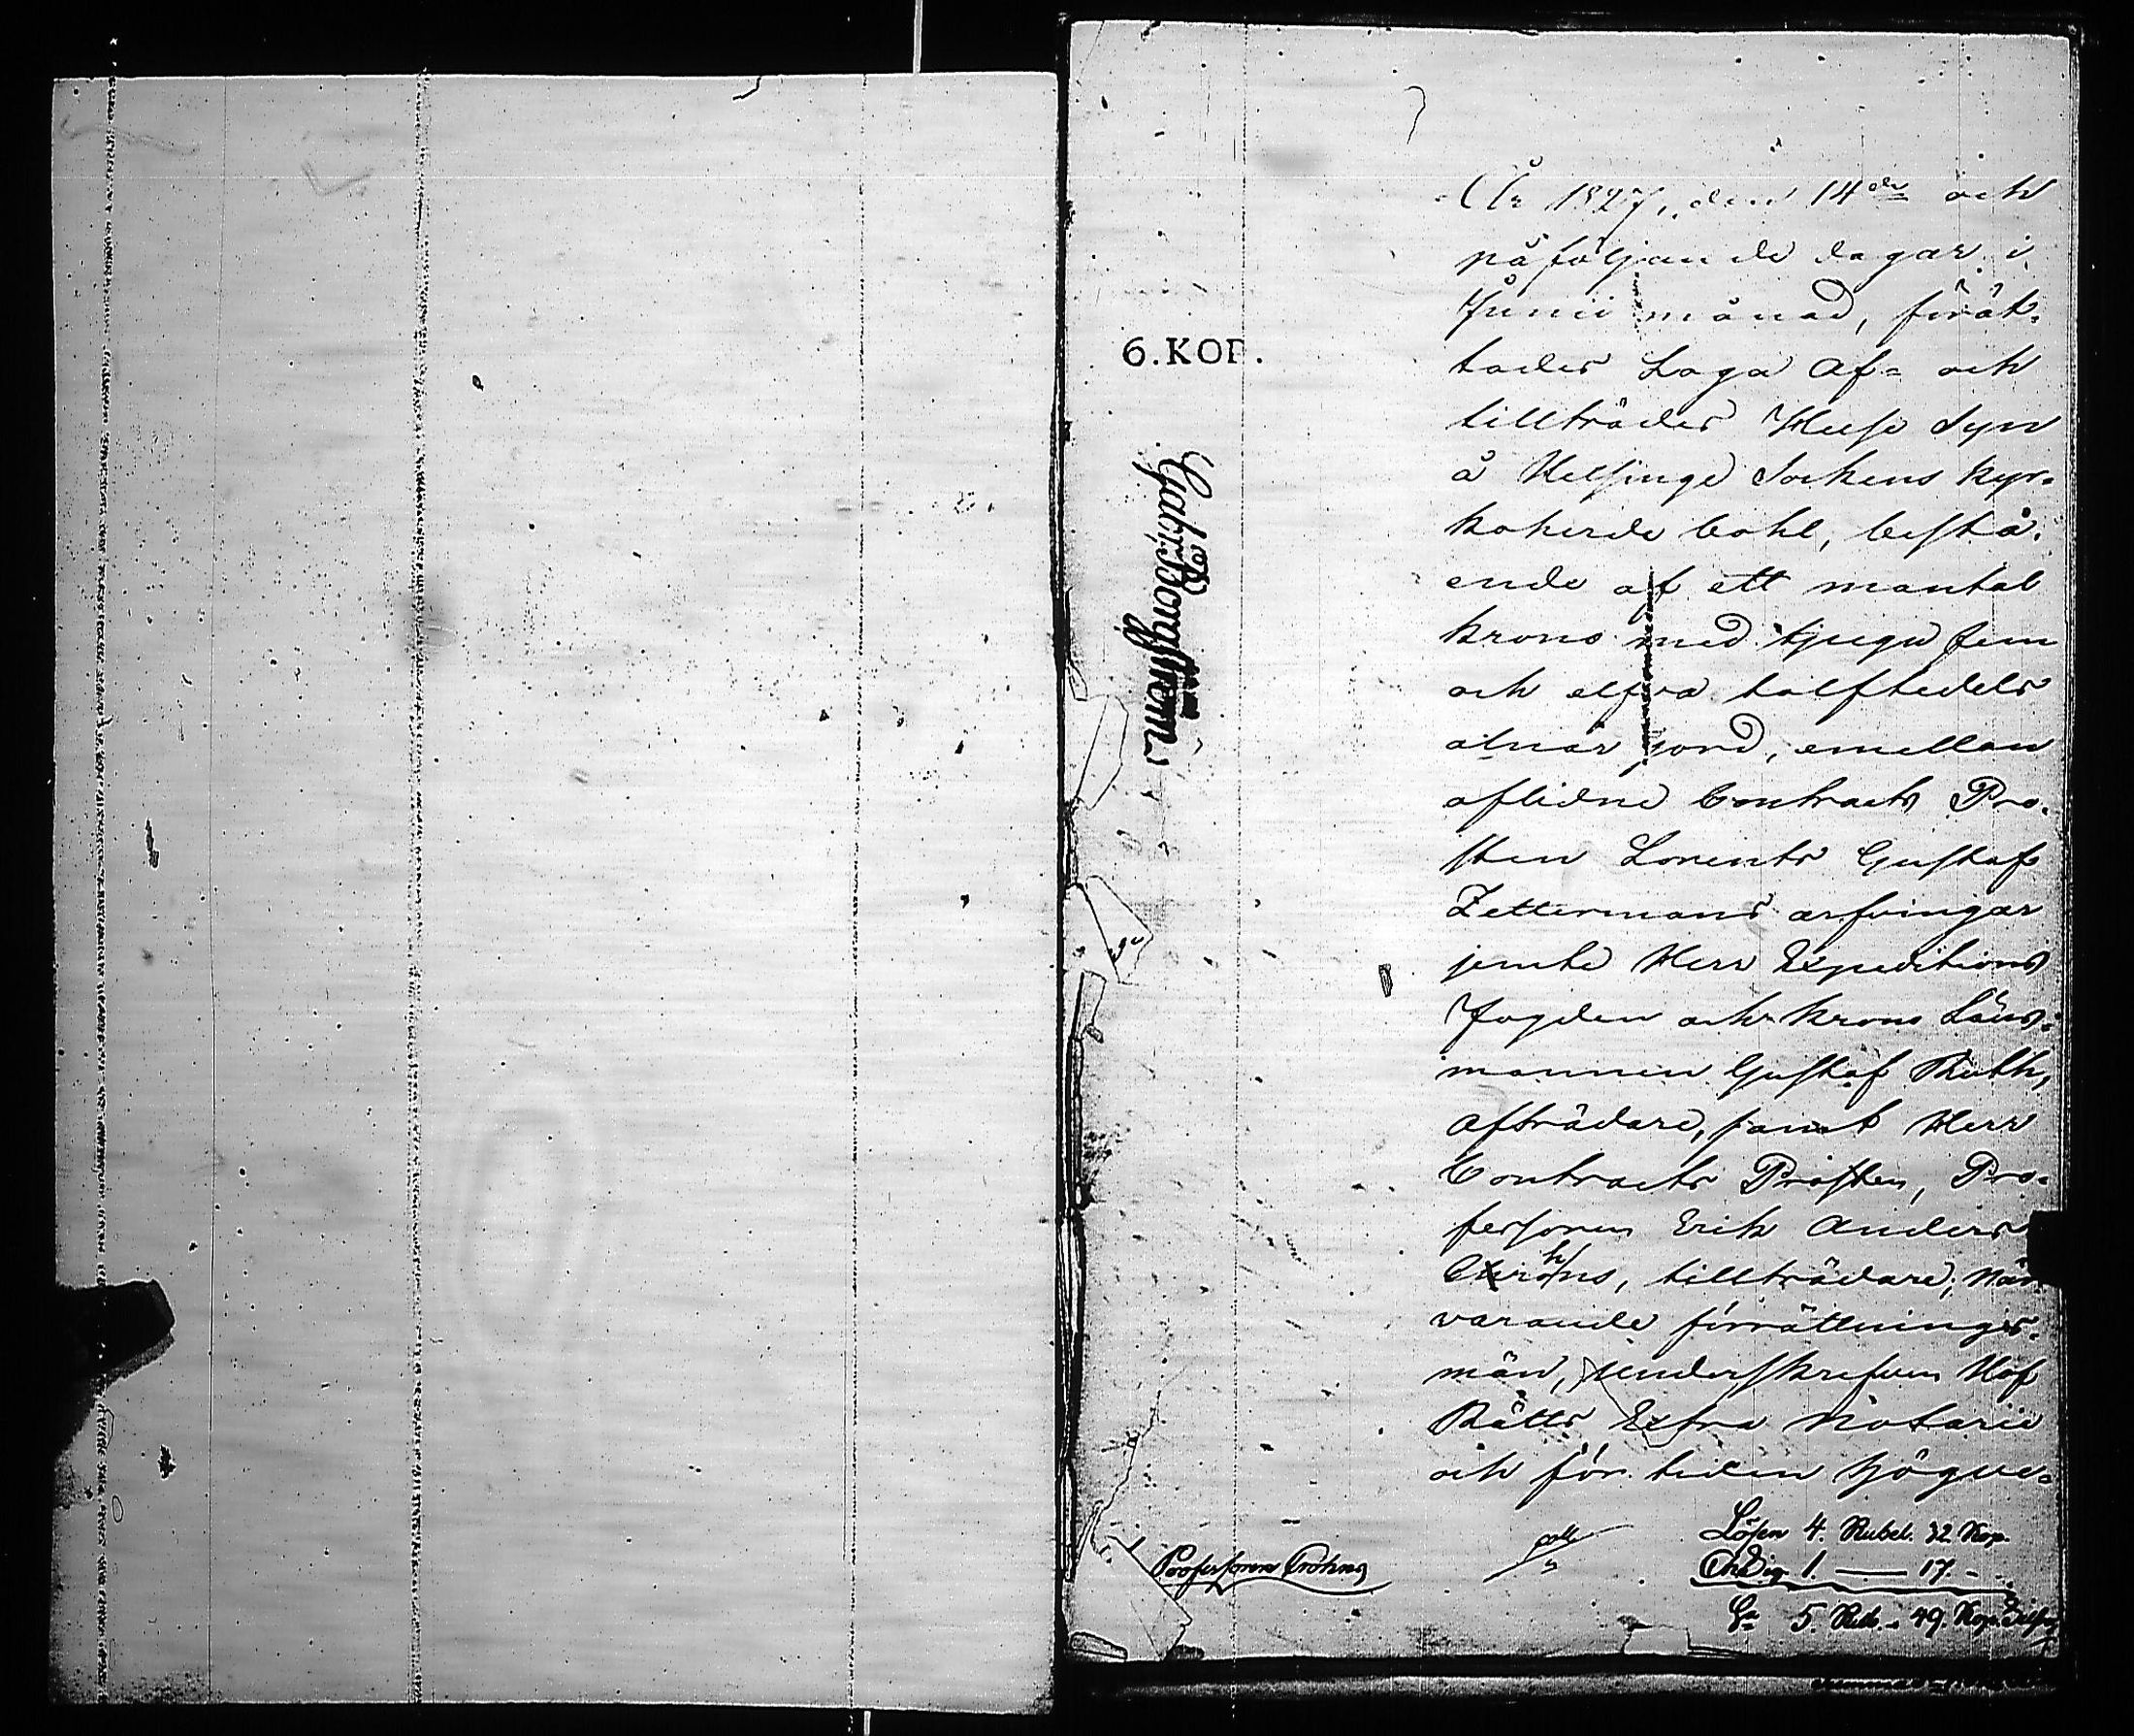 6.KOP.
År 1827, den 14de och
påföljande dagar i
Junii månad, förät-
tades Laga Af- och
tillträdes Huse Syn
å Helsinge Sockens Kyr-
koherde bohl, bestå-
ende af ett mantal
krono med tjugu fem
och elfva tolftedels
alnar jord, emellan
aflidne Contracts Pro-
sten Lorents Gustaf
Zettermans arfvingar
jemte Herr Expeditions
Fogden och Krono Läns-
mannen Gustaf Ruth,
afträdare, samt Herr
Contracts Prosten, Pro-
fessoren Erik Anders
Crohns, tillträdare; När
varande förrättnings-
män, Underskrefven Hof
Rätts Extra Notarie
och för tiden tjögve-
Professoren Crohns
Lösen 4. Rubel. 32 Kop.
Ch Sig 1. — 17. -
Sa 5. Rub. - 49. Kop. Silfver